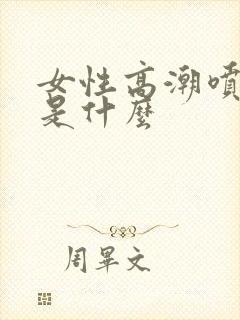 女性高潮噴
是什麼
周畢文